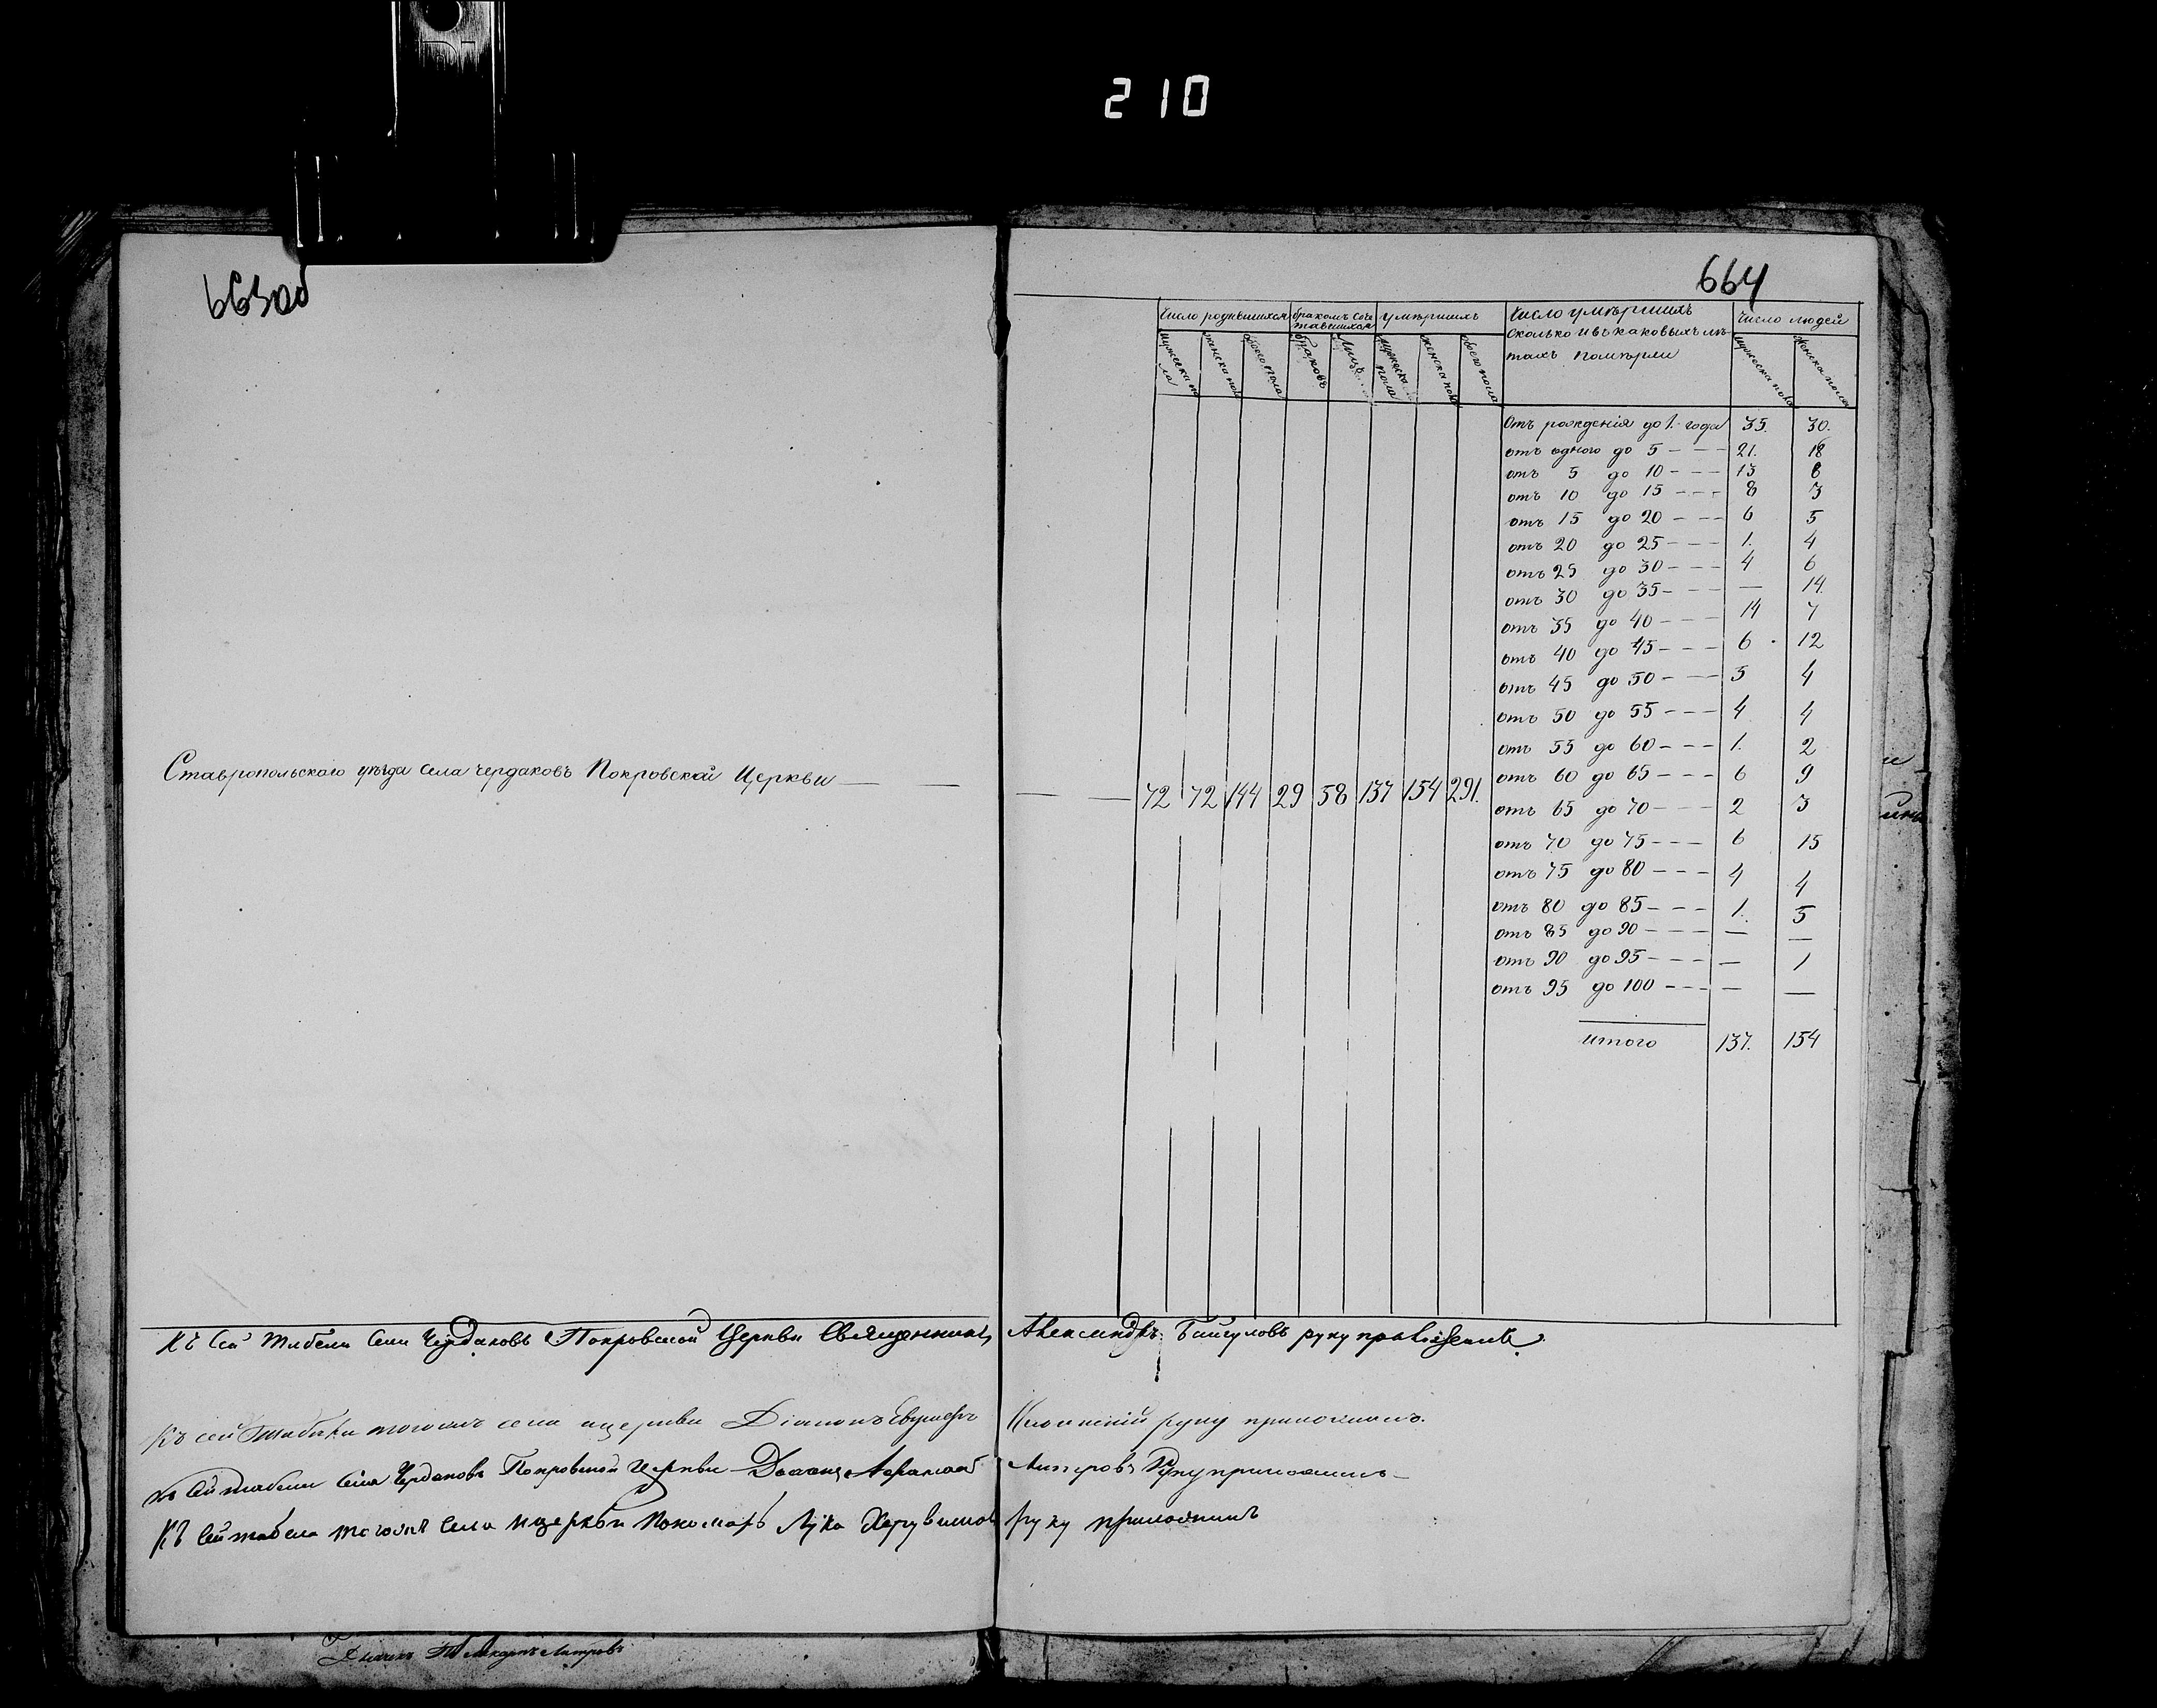 210
663об
664
Число родившихся браком соче тавшихся умершихъ Число умершихъ сколько и въ каковыхъ лѣ- тахъ померли Число людей
мужеска по ла женска пола обоего пола браковъ Лицъ мужеска пола женска пола обоего пола мужеска пола женска пола
Отъ рожденія до 1. года 35. 30.
отъ одного до 5 - - - 21. 18
отъ 5 до 10 - - - 13 8
отъ 10 до 15 - - - 8 3
отъ 15 до 20 - - - 6 5
отъ 20 до 25 - - - 1. 4
отъ 25 до 30 - - - 4 6
отъ 30 до 35 - - - — 14.
отъ 35 до 40 - - - 14 7
отъ 40 до 45 - - - 6 12
отъ 45 до 50 - - - 5 4
отъ 50 до 55 - - - 4 4
отъ 55 до 60 - - - 1. 2
отъ 60 до 65 - - - 6 9
Ставропольскаго уѣзда села Чердаковъ Покровской Церкви — — — — 72 72 144 29 58 137 154 291.
отъ 65 до 70 - - - 2 3
отъ 70 до 75 - - - 6 15
отъ 75 до 80 - - - 4 4
отъ 80 до 85 - - - 1. 5
отъ 85 до 90 - - - — —
отъ 90 до 95 - - - — 1
отъ 95 до 100 - - - — —
итого 137. 154
Къ сей табели села Чердаковъ Покровской Церкви Священникъ Александръ руку приложилъ
Къ сей табели тогожъ села и церкви Діаконъ руку приложилъ.
къ сей табели села Чердаковъ Покровской церкви руку приложилъ —
Къ сей табели тогоже села и церкви пономарь Лука Херувимовъ руку приложилъ